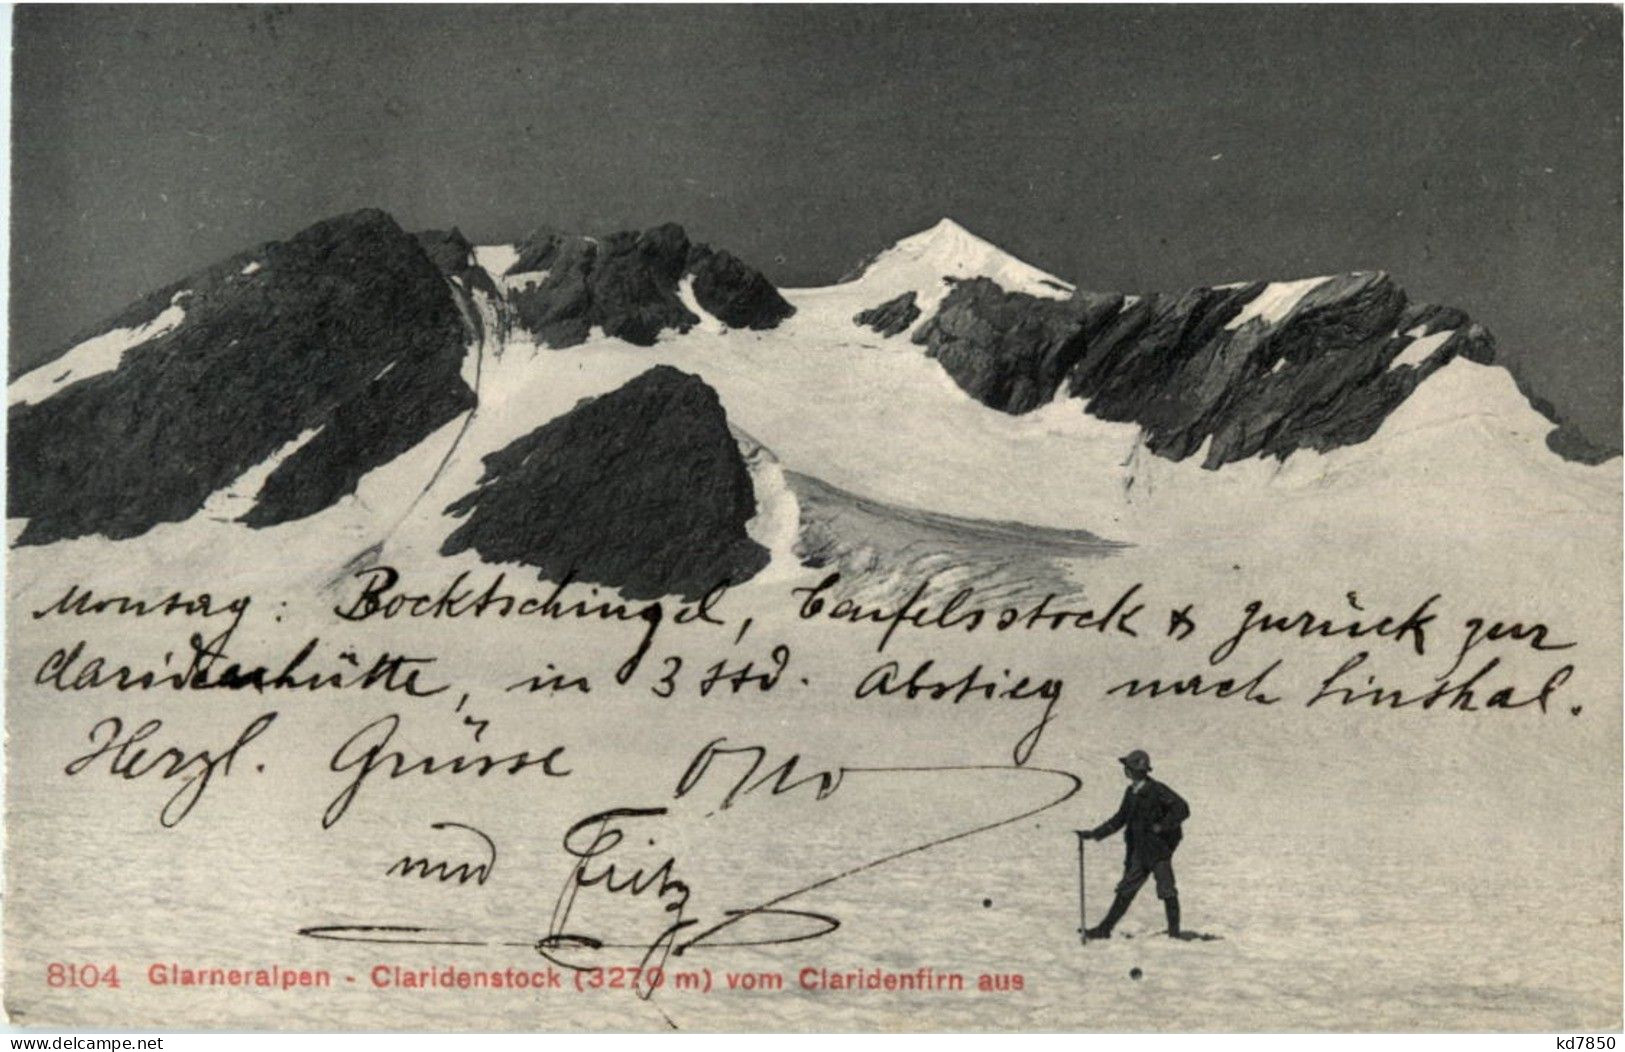 Montag: Bocktschingel, Teufelsstock & zurück zur
Claridenhütte, in 3 Std. Abstieg nach Linthal.
Herzl. Grüsse Otto
und Fritz
8104 Glarneralpen - Claridenstock (3270 m) vom Claridenfirn aus
www.delcampe.net
kd7850